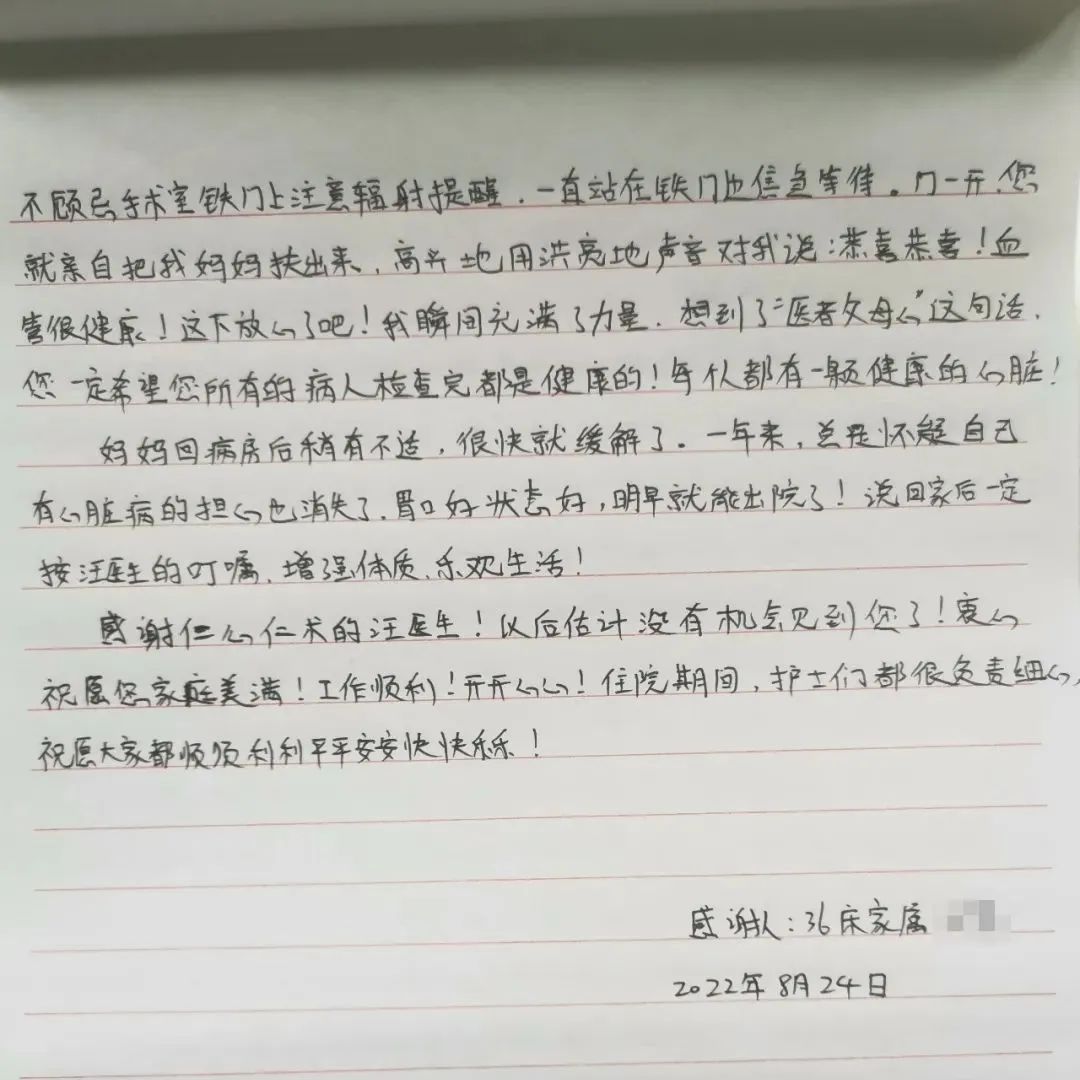 不顾忌手术室铁门上注意辐射提醒，一直站在铁门边焦急等待。门一开，您
就亲自把我妈妈扶出来，高兴地用洪亮地声音对我说：恭喜恭喜！血
管很健康！这下放心了吧！我瞬间充满了力量，想到了“医者父母心”这句话，
您一定希望您所有的病人检查完都是健康的！每个人都有一颗健康的心脏！
妈妈回病房后稍有不适，很快就缓解了。一年来，总是怀疑自己
有心脏病的担心也消失了，胃口好状态好，明早就能出院了！说回家后一定
按汪医生的叮嘱，增强体质，乐观生活！
感谢仁心仁术的汪医生！以后估计没有机会见到您了！衷心
祝愿您家庭美满！工作顺利！开开心心！住院期间，护士们都很负责细心，
祝愿大家都顺顺利利平平安安快快乐乐！
感谢人：36床家属
2022年8月24日